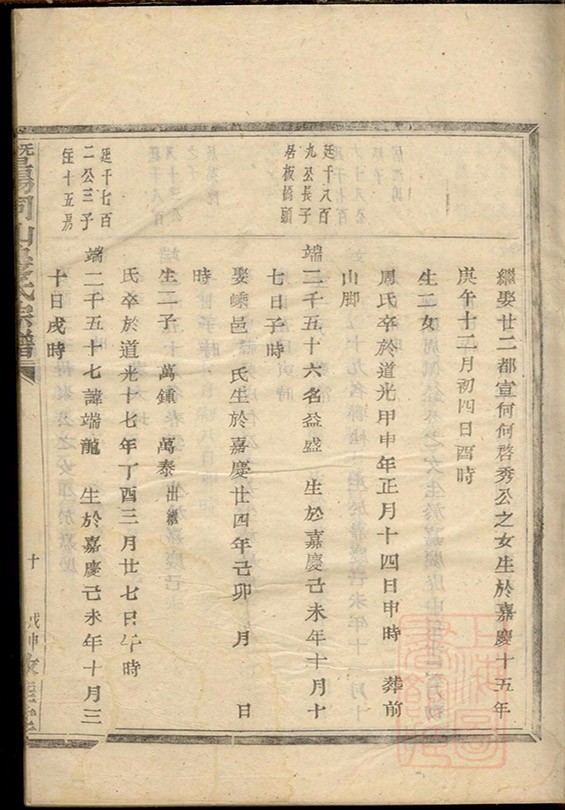 繼娶廿二都宣何何啓秀公之女生於嘉慶十五年
庚午十二月初四日酉時
生二女
周氏卒於道光甲申年正月十四日申時 葬前
山脚
廷千八百
九公長子
居板橋頭
端二千五十六名益盛 生於嘉慶己未年十月十
七日子時
娶嵊邑 氏生於嘉慶廿四年己卯 月 日
時
生二子 萬鎮 萬泰出繼
氏卒於道光十七年丁酉三月廿七日午時
廷千七百
二公三子
住十五房
端二千五十七諱端龍 生於嘉慶己未年十月三
十日戌時
暨陽同山 氏宗譜
十
戊申